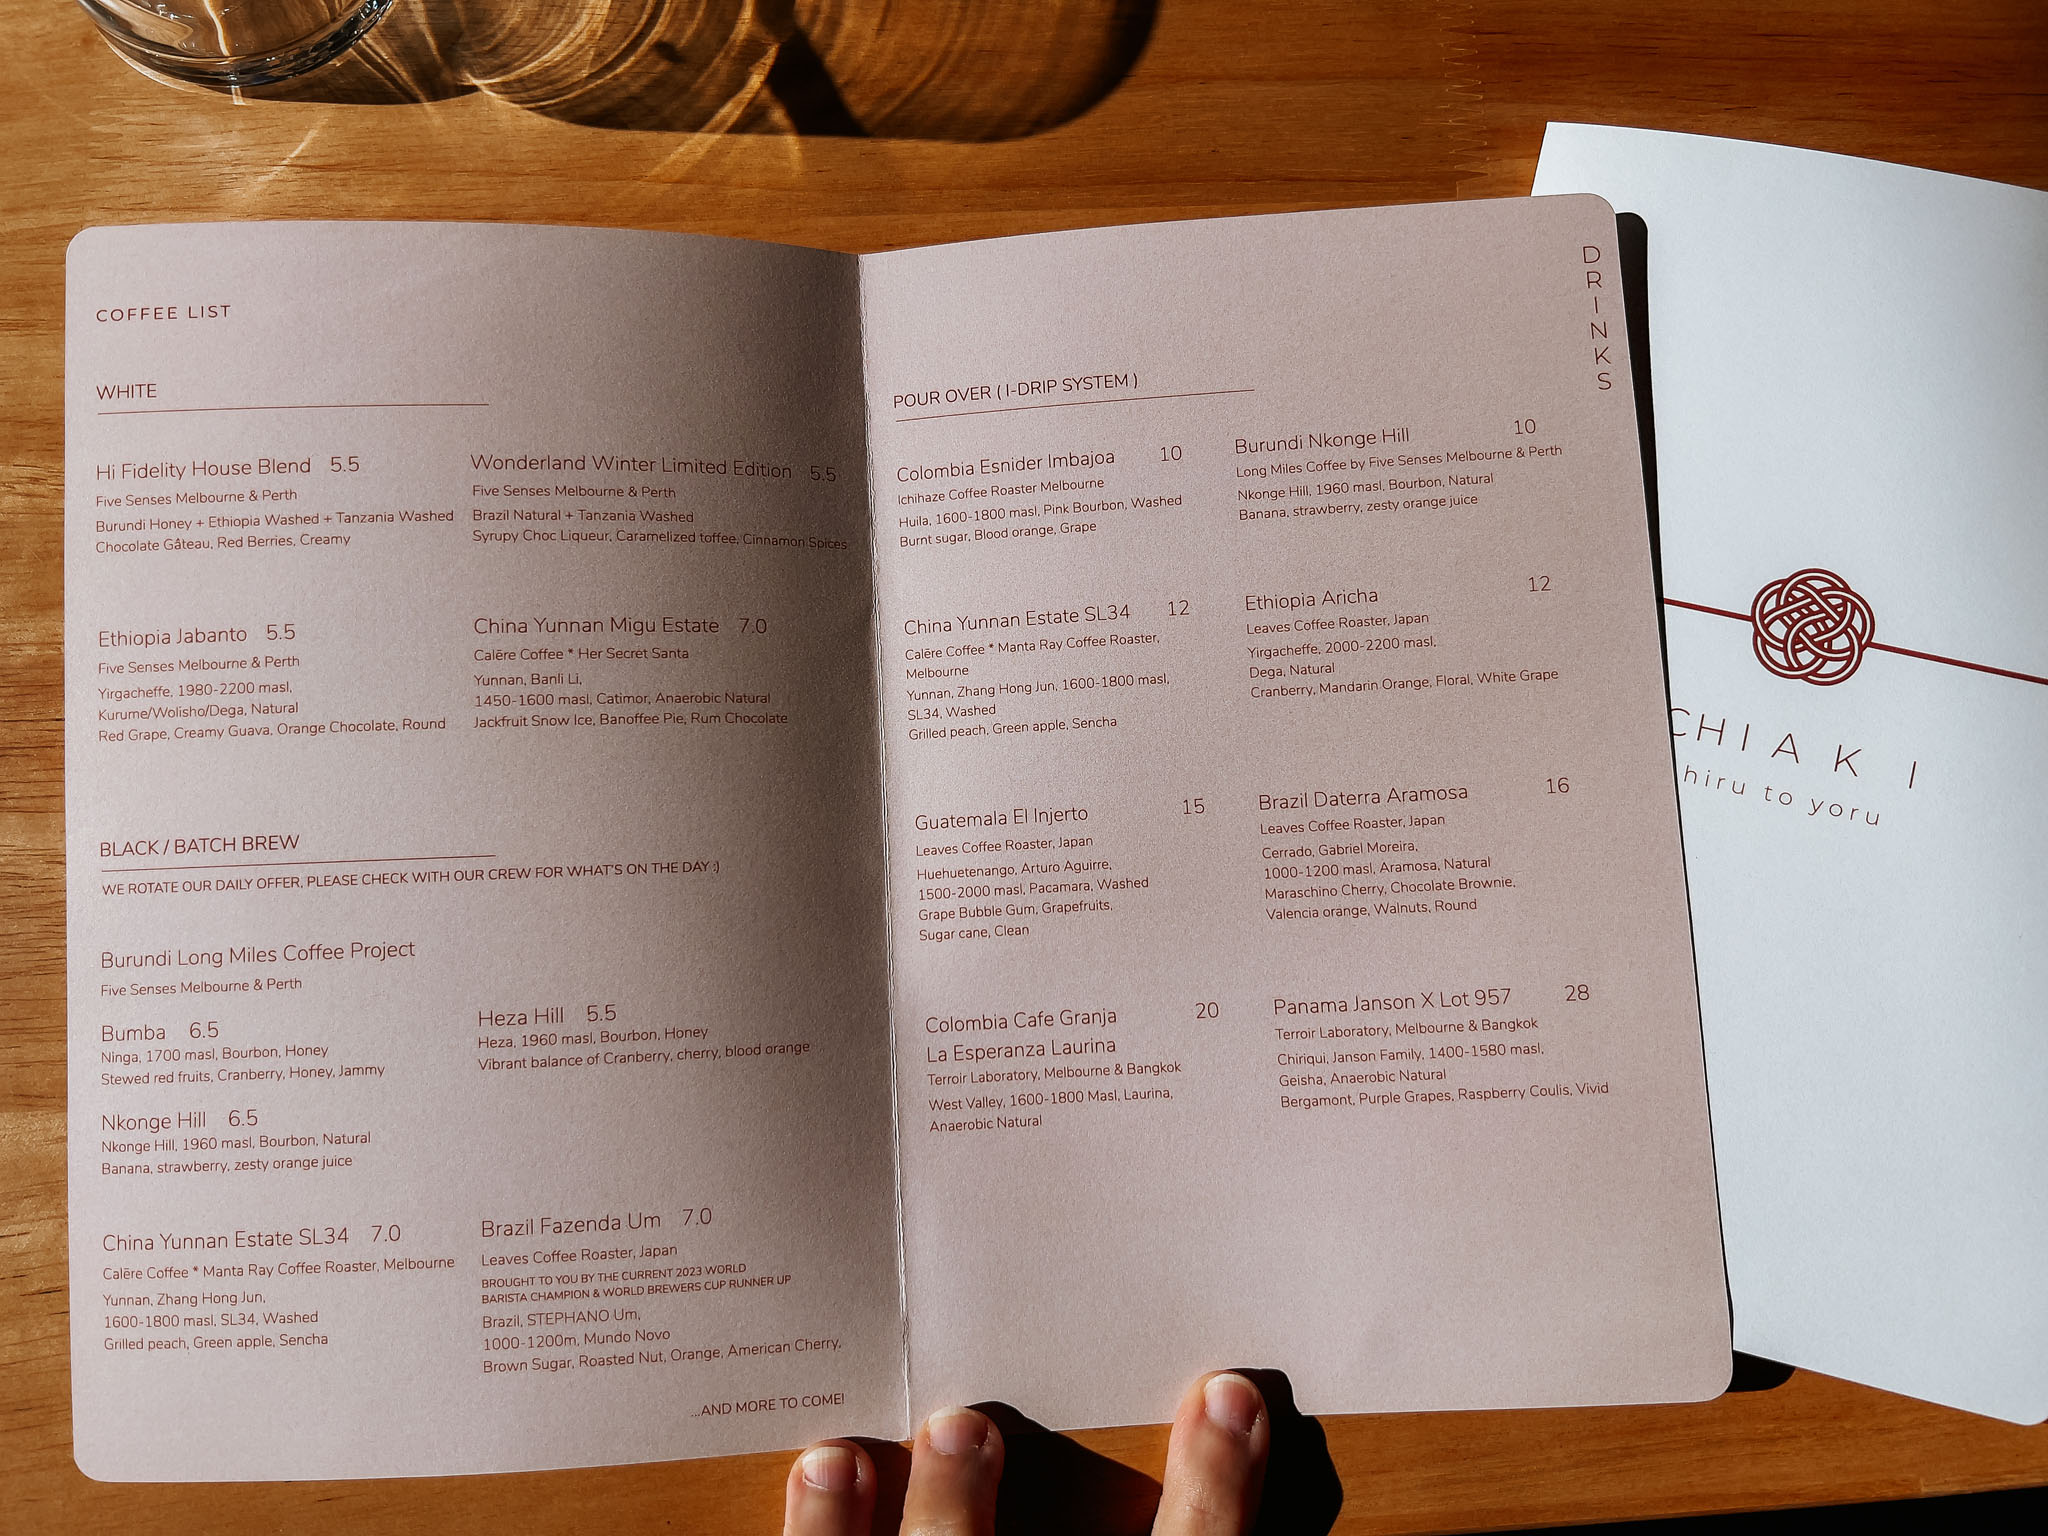 COFFEE LIST
WHITE
Hi Fidelity House Blend 5.5
Five Senses Melbourne & Perth
Burundi Honey + Ethiopia Washed + Tanzania Washed
Chocolate Gâteau, Red Berries, Creamy
Wonderland Winter Limited Edition 5.5
Five Senses Melbourne & Perth
Brazil Natural + Tanzania Washed
Syrupy Choc Liqueur, Caramelized toffee, Cinnamon Spices
Ethiopia Jabanto 5.5
Five Senses Melbourne & Perth
Yirgacheffe, 1980-2200 masl,
Kurume/Wolisho/Dega, Natural
Red Grape, Creamy Guava, Orange Chocolate, Round
China Yunnan Migu Estate 7.0
Calēre Coffee * Her Secret Santa
Yunnan, Banli Li,
1450-1600 masl, Catimor, Anaerobic Natural
Jackfruit Snow Ice, Banoffee Pie, Rum Chocolate
BLACK / BATCH BREW
WE ROTATE OUR DAILY OFFER, PLEASE CHECK WITH OUR CREW FOR WHAT'S ON THE DAY :)
Burundi Long Miles Coffee Project
Five Senses Melbourne & Perth
Bumba 6.5
Ninga, 1700 masl, Bourbon, Honey
Stewed red fruits, Cranberry, Honey, Jammy
Heza Hill 5.5
Heza, 1960 masl, Bourbon, Honey
Vibrant balance of Cranberry, cherry, blood orange
Nkonge Hill 6.5
Nkonge Hill, 1960 masl, Bourbon, Natural
Banana, strawberry, zesty orange juice
China Yunnan Estate SL34 7.0
Calēre Coffee * Manta Ray Coffee Roaster, Melbourne
Yunnan, Zhang Hong Jun,
1600-1800 masl, SL34, Washed
Grilled peach, Green apple, Sencha
Brazil Fazenda Um 7.0
Leaves Coffee Roaster, Japan
BROUGHT TO YOU BY THE CURRENT 2023 WORLD
BARISTA CHAMPION & WORLD BREWERS CUP RUNNER UP
Brazil, STEPHANO Um,
1000-1200m, Mundo Novo
Brown Sugar, Roasted Nut, Orange, American Cherry,
...AND MORE TO COME!
DRINKS
POUR OVER ( I-DRIP SYSTEM )
Colombia Esnider Imbajoa 10
Ichihaze Coffee Roaster Melbourne
Huila, 1600-1800 masl, Pink Bourbon, Washed
Burnt sugar, Blood orange, Grape
Burundi Nkonge Hill 10
Long Miles Coffee by Five Senses Melbourne & Perth
Nkonge Hill, 1960 masl, Bourbon, Natural
Banana, strawberry, zesty orange juice
China Yunnan Estate SL34 12
Calēre Coffee * Manta Ray Coffee Roaster,
Melbourne
Yunnan, Zhang Hong Jun, 1600-1800 masl,
SL34, Washed
Grilled peach, Green apple, Sencha
Ethiopia Aricha 12
Leaves Coffee Roaster, Japan
Yirgacheffe, 2000-2200 masl,
Dega, Natural
Cranberry, Mandarin Orange, Floral, White Grape
Guatemala El Injerto 15
Leaves Coffee Roaster, Japan
Huehuetenango, Arturo Aguirre,
1500-2000 masl, Pacamara, Washed
Grape Bubble Gum, Grapefruits,
Sugar cane, Clean
Brazil Daterra Aramosa 16
Leaves Coffee Roaster, Japan
Cerrado, Gabriel Moreira,
1000-1200 masl, Aramosa, Natural
Maraschino Cherry, Chocolate Brownie,
Valencia orange, Walnuts, Round
Colombia Cafe Granja 20
La Esperanza Laurina
Terroir Laboratory, Melbourne & Bangkok
West Valley, 1600-1800 Masl, Laurina,
Anaerobic Natural
Panama Janson X Lot 957 28
Terroir Laboratory, Melbourne & Bangkok
Chiriqui, Janson Family, 1400-1580 masl,
Geisha, Anaerobic Natural
Bergamont, Purple Grapes, Raspberry Coulis, Vivid
CHIAKI
hiru to yoru